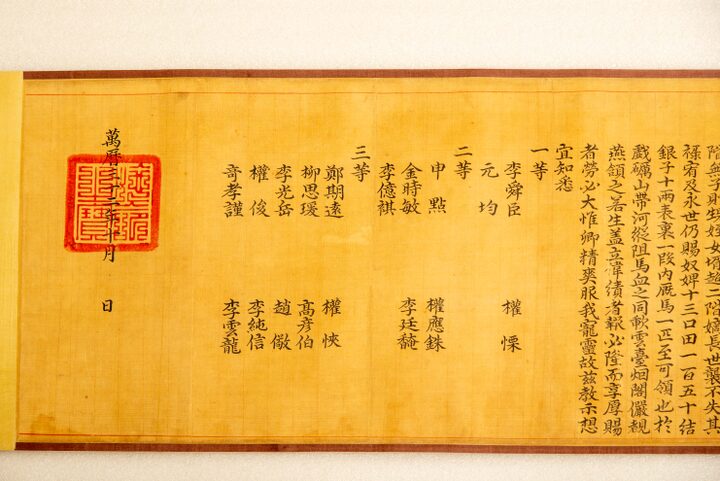 階無子則甥姪女壻超二階嫡長世襲不失其
祿宥及永世仍賜奴婢十三口田一百五十結
銀子十兩表裏一段內厩馬一匹至可領也於
戲礪山帶河縱阻馬血之同歃雲臺烟閣儼覩
燕頷之若生盖立偉績者報必隆而享厚賜
者勞必大惟卿精爽服我寵靈故玆教示想
宜知悉
一等
李舜臣 權慄
元均
二等
申點 權應銖
金時敏 李廷馣
李億祺
三等
鄭期遠 權悏
柳思瑗 高彦伯
李光岳 趙儆
權俊 李純信
奇孝謹 李雲龍
萬曆三十二年十月 日